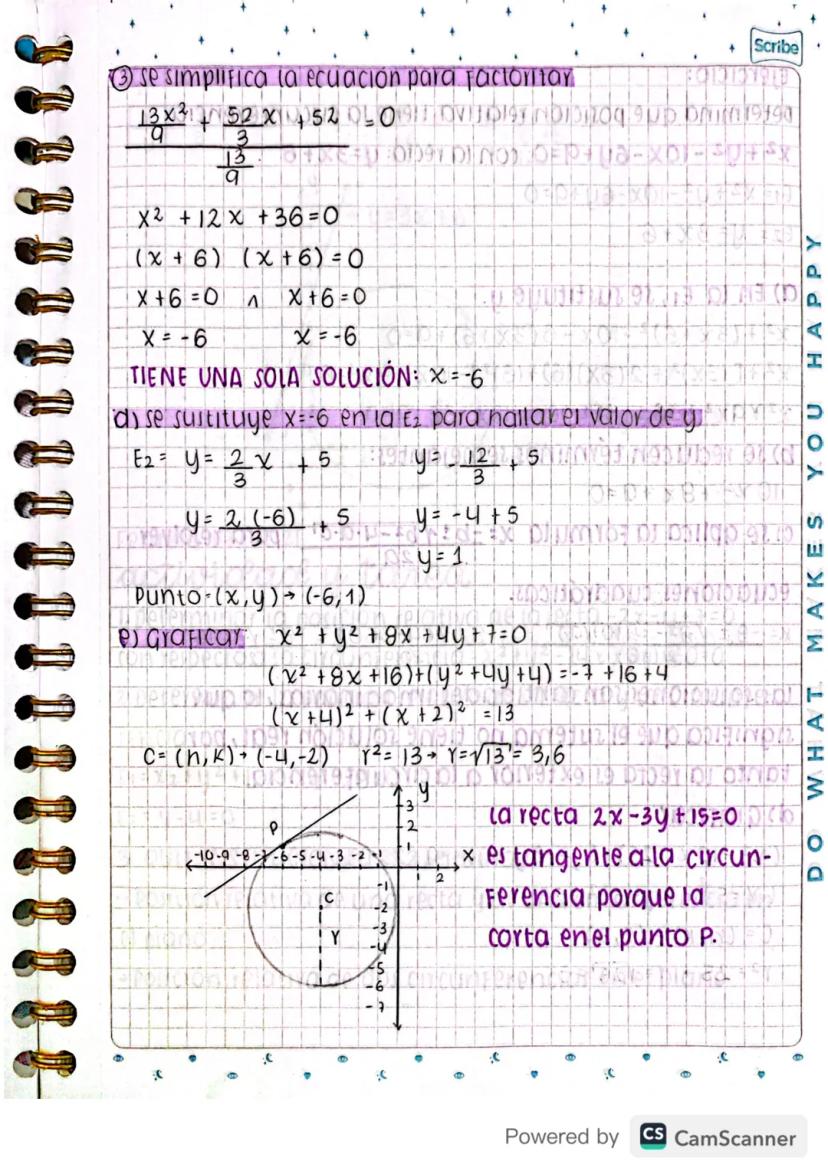 Scribe
③ se simplifica la ecuación para factoritar
13x²/9 + 52/3 x + 52 = 0
13/9
x² + 12x + 36 = 0
(x + 6) (x + 6) = 0
x + 6 = 0 ∧ x + 6 = 0
x = -6 x = -6
TIENE UNA SOLA SOLUCIÓN: x = -6
d) se sustituye x = -6 en la E₂ para hallar el valor de y
E₂ = y = 2/3 x + 5 y = - 12/3 + 5
y = 2(-6)/3 + 5 y = -4 + 5
y = 1
Punto = (x, y) → (-6, 1)
e) Graficar x² + y² + 8x + 4y + 7 = 0
(x² + 8x + 16) + (y² + 4y + 4) = -7 + 16 + 4
(x + 4)² + (x + 2)² = 13
C = (h, k) → (-4, -2) r² = 13 → r = √13 = 3,6
y
3
2
1
P
-10 -9 -8 -7 -6 -5 -4 -3 -2 -1 2 x
-1
-2
-3
-4
-5
-6
-7
C
r
La recta 2x - 3y + 15 = 0
es tangente a la circun-
ferencia porque la
corta en el punto P.
DO WHAT MAKES YOU HAPPY
Powered by CS CamScanner